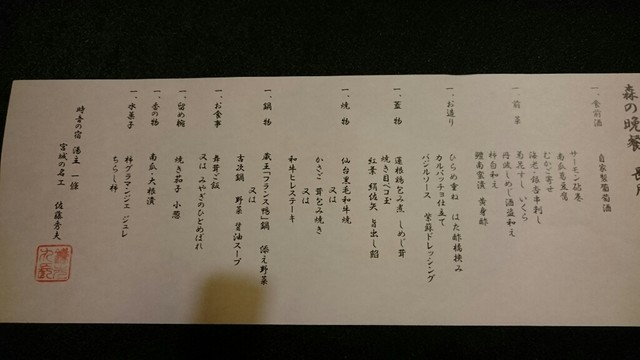 森の晩餐
一、食前酒
自家製葡萄酒
一、前菜
サーモン砧巻
南瓜葛豆腐
むかご寄せ
海老・銀杏串刺し
菊花すし いくら
丹波しめじ酒盗和え
柿白和え
鱧南蛮漬 黄身酢
一、お造り
ひらめ重ね はた酢橘挟み
カルパッチョ仕立て
バジルソース 紫蘇ドレッシング
一、蓋物
蓮根鶏包み煮 しめじ茸
焼き目ベコ玉
紅葉 絹佐矢 旨出し餡
一、焼物
仙台黒毛和牛焼
又は
かさご 茸包み焼き
又は
和牛ヒレステーキ
一、鍋物
蔵王「フランス鴨」鍋 添え野菜
又は
吉次鍋 野菜 醤油スープ
一、お食事
舞茸ご飯
又は みやぎのひとめぼれ
一、留め椀
焼き茄子 小葱
一、香の物
南瓜・大根漬
一、水菓子
柿グラマンジェ ジュレ
ちらし柿
時音の宿 湯主 一條
宮城の名工 佐藤秀夫